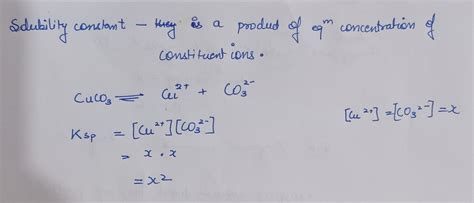 Solubility constant - they is a product of eqᵐ concentration of
constituent ions.
CuCO₃ ⇌ Cu²⁺ + CO₃²⁻
Ksp = [Cu²⁺][CO₃²⁻]
[Cu²⁺] = [CO₃²⁻] = x
= x . x
= x²